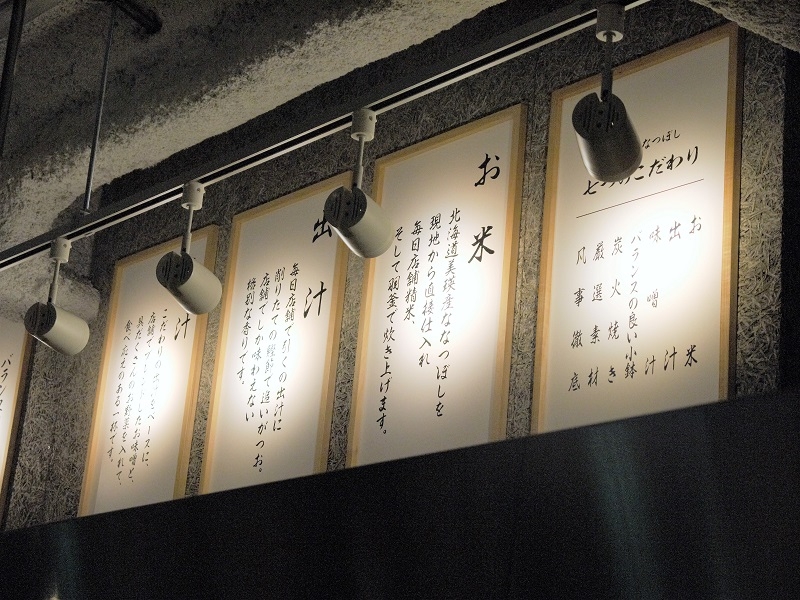 なつほし
こだわり
お米
出汁
味噌汁
バランスの良い小鉢
炭火焼き
厳選素材
凡事徹底
お米
北海道美瑛産ななつぼしを
現地から直接仕入れ
毎日店舗精米、
そして羽釜で炊き上げます。
出汁
毎日店舗で引くの出汁に
削りたての鰹節で追いがつお。
店舗でしか味わえない
特別な香りです。
汁
こだわりの出汁をベースに、
店舗でブレンドしたお味噌と、
具だくさんのお野菜を入れて、
食べごたえのある一杯です。
バランス